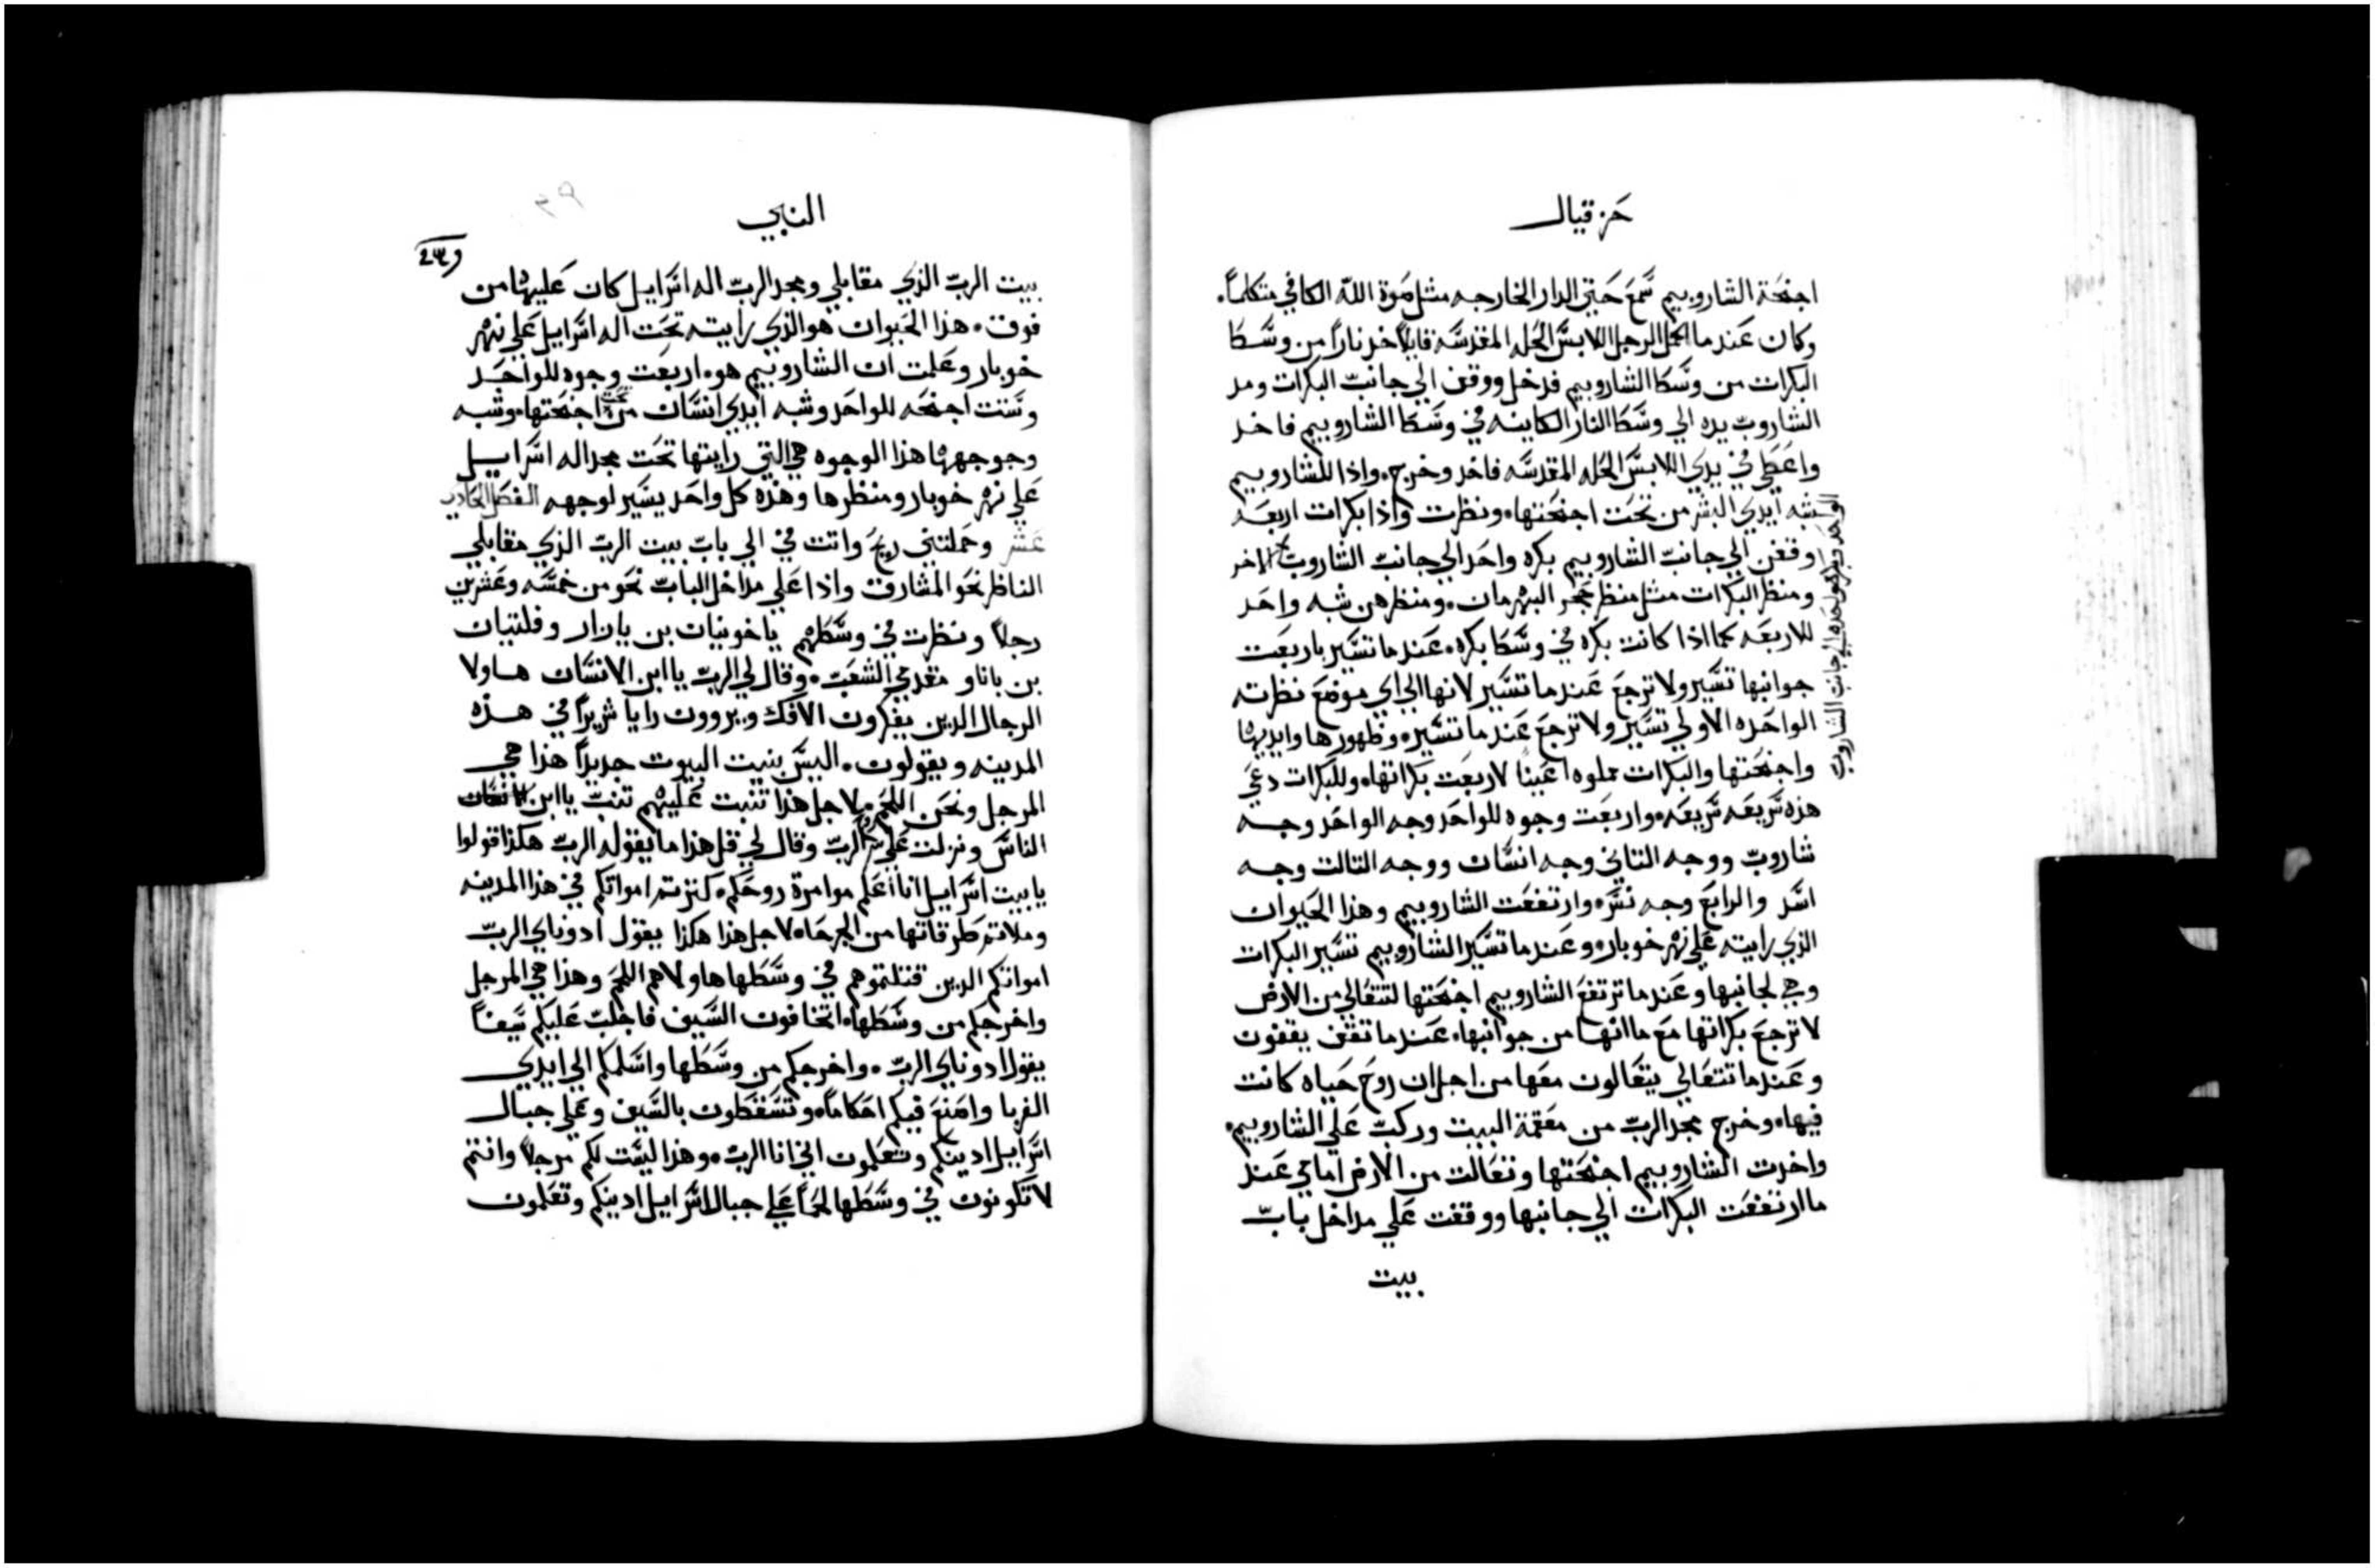 حزقيال
اجنحة الشاروبيم سمع حتي الدار الخارجه مثل صوة الله الكافي متكلماً.
وكان عندما اكمل الرجل اللابس الحله المقدسه قايلاً خد ناراً من وسط
البكرات من وسط الشاروبيم فدخل ووقف الي جانب البكرات ومد
الشاروب يده الي وسط النار الكاينه في وسط الشاروبيم فاخد
واعطي في يدي اللابس الحله المقدسه فاخد وخرج. واذا للشاروبيم
شبه ايدي البشر من تحت اجنحتها. ونظرت واذا بكرات اربعه
وقفن الي جانب الشاروبيم بكره واحد الي جانب الشاروب الاخر
الواحد وبكره واحده الي جانب الشاروب
ومنظر البكرات مثل منظر حجر البهرمان. ومنظرهن شبه واحد
للاربعه كما اذا كانت بكره في وسط بكره. عندما تسير باربعت
جوانبها تسير ولا ترجع عندما تسير لانها الي اي موضع نظرته
الواحده الاولي تسير ولا ترجع عندما تسير. وظهورها وايديها
واجنحتها والبكرات مملوه اعيناً لاربعت بكراتها. وللبكرات دعي
هذه تربعه تربعه. واربعت وجوه للواحد وجه الواحد وجه
شاروب ووجه التاني وجه انسان ووجه التالت وجه
اسد والرابع وجه نسر. وارتفعت الشاروبيم وهذا الحيوان
الذي رايته علي نهر خوبار. وعندما تسير الشاروبيم تسير البكرات
وهي لجانبها وعندما ترتفع الشاروبيم اجنحتها لتتعالي من الارض
لا ترجع بكراتها مع ما انها من جوانبها. عندما تقف يقفون
وعندما تتعالي يتعالون معها من اجل ان روح حياه كانت
فيها. وخرج مجد الرب من معقمة البيت وركب علي الشاروبيم.
واخدت الشاروبيم اجنحتها وتعالت من الارض امامي عند
ما ارتفعت البكرات الي جانبها ووقفت علي مداخل باب
بيت
النبي
بيت الرب الذي مقابلي ومجد الرب اله اسرايل كان عليها من
فوق. هذا الحيوان هو الذي رايته تحت اله اسرايل علي نهر
خوبار وعلمت ان الشاروبيم هو. اربعت وجوه للواحد
وستت اجنحه للواحد وشبه ايدي انسان من تحت اجنحتها. وشبه
وجوجهها هذا الوجوه هي التي رايتها تحت مجد اله اسرايل
علي نهر خوبار ومنظرها وهذه كل واحد يسير لوجهه الفصل الحادي
عشر وحملتني ريح واتت في الي باب بيت الرب الذي مقابلي
الناظر نحو المشارق واذا علي مداخل الباب نحو من خمسه وعشرين
رجلاً ونظرت في وسطهم ياخونيان بن يازار وفلتيان
بن باناو مقدمي الشعب. وقال لي الرب يا ابن الانسان هاولا
الرجال الدين يفكرون الافك ويروون رايا شريراً في هذه
المدينه ويقولون. اليس بنيت البيوت جديداً هذا هي
المرجل ونحن اللحم. لاجل هذا تنبت عليهم تنب يا ابن
الناس ونزلت علي روح الرب وقال لي قل هذا ما يقوله الرب هكذا قولوا
يا بيت اسرايل انا اعلم موامرة روحكم. كنزتم امواتكم في هذا المدينه
وملاتم طرقاتها من الجرحا. لاجل هذا هكذا يقول ادوناي الرب
امواتكم الدين قتلتموهم في وسطها هاولا هم اللحم وهذا هي المرجل
واخرجكم من وسطها. اتخافون السيف فاجلب عليكم سيفاً
يقول ادوناي الرب. واخرجكم من وسطها واسلمكم الي ايدي
الغربا واصنع فيكم احكاماً. وتسقطون بالسيف وعلي جبال
اسرايل ادينكم وتعلمون اني انا الرب. وهذا ليست لكم مرجلاً وانتم
لا تكونون في وسطها لحماً علي جبال اسرايل ادينكم وتعلمون